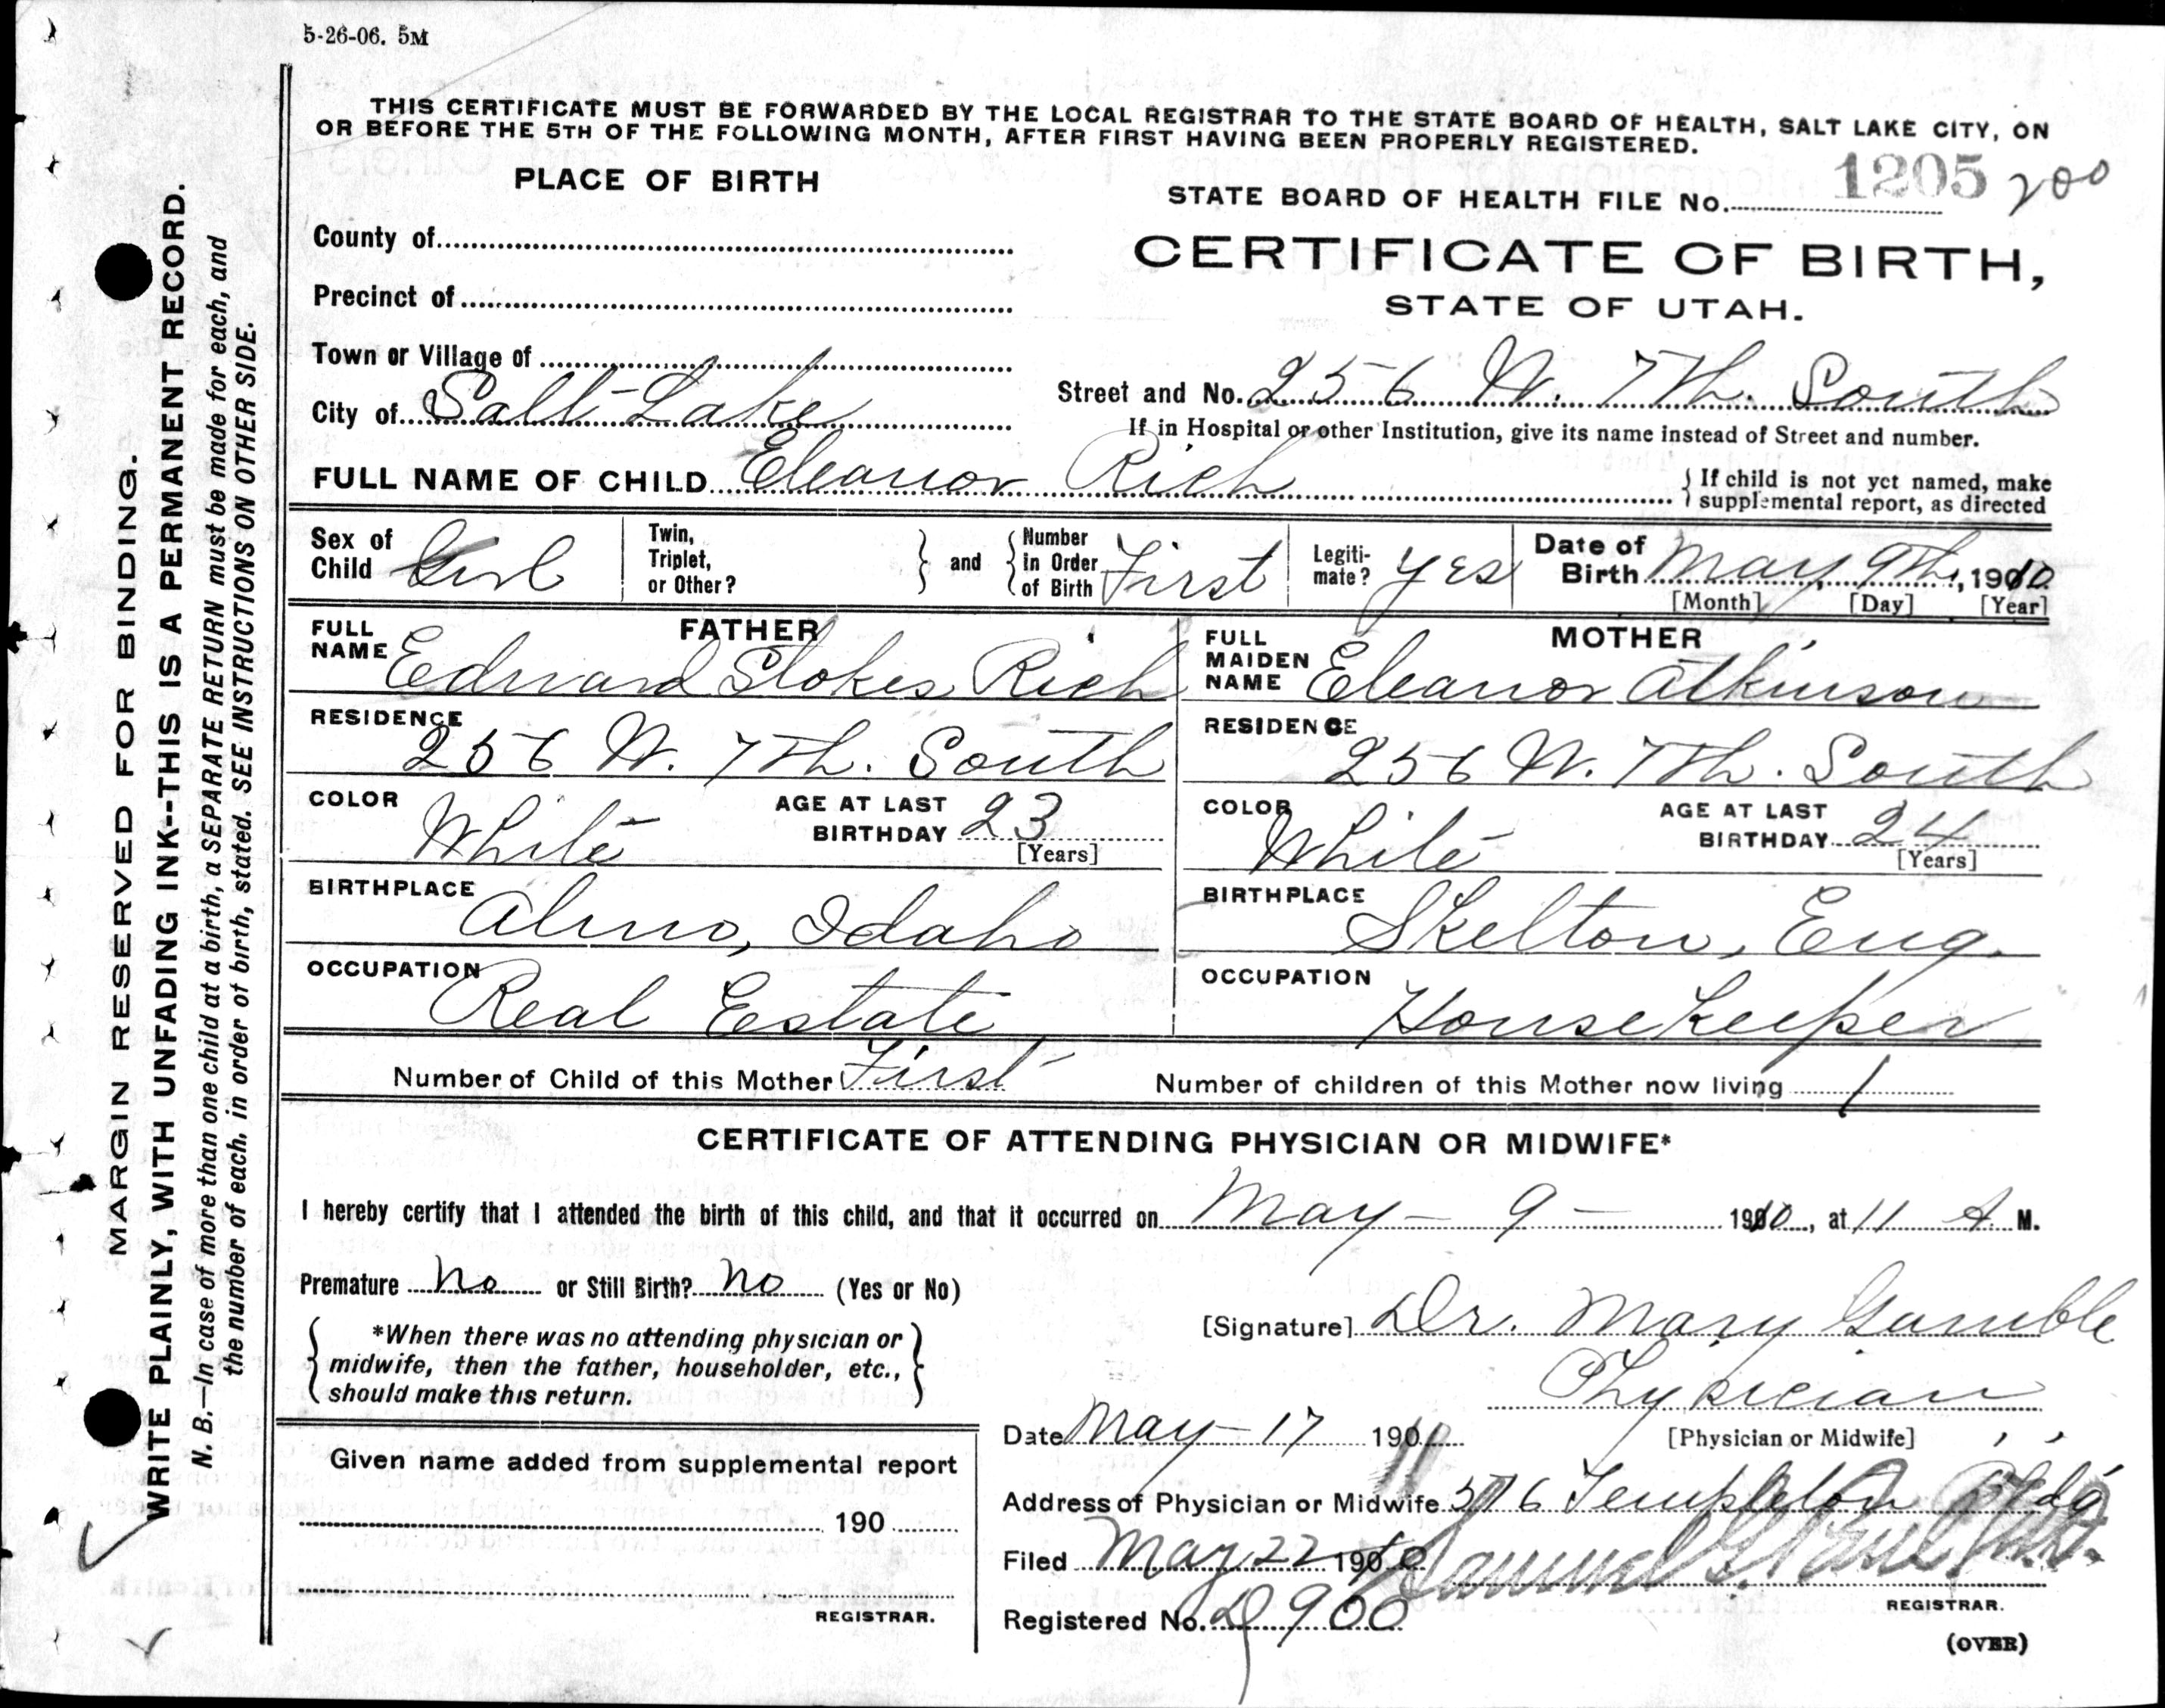 5-26-06. 5M
THIS CERTIFICATE MUST BE FORWARDED BY THE LOCAL REGISTRAR TO THE STATE BOARD OF HEALTH, SALT LAKE CITY, ON
OR BEFORE THE 5TH OF THE FOLLOWING MONTH, AFTER FIRST HAVING BEEN PROPERLY REGISTERED.
PLACE OF BIRTH
STATE BOARD OF HEALTH FILE No. 1205 200
County of
CERTIFICATE OF BIRTH,
Precinct of
STATE OF UTAH.
Town or Village of
City of Salt Lake
Street and No. 256 W. 7th. South
If in Hospital or other Institution, give its name instead of Street and number.
FULL NAME OF CHILD Eleanor Rich
{ If child is not yet named, make
supplemental report, as directed
Sex of Child Girl
Twin, Triplet, or Other?
} and { Number in Order of Birth First
Legitimate? yes
Date of Birth May 9th, 1910
[Month] [Day] [Year]
FATHER
FULL NAME Edward Stokes Rich
MOTHER
FULL MAIDEN NAME Eleanor Atkinson
RESIDENCE 256 W. 7th. South
RESIDENCE 256 W. 7th. South
COLOR White AGE AT LAST BIRTHDAY 23 [Years]
COLOR White AGE AT LAST BIRTHDAY 24 [Years]
BIRTHPLACE Almo, Idaho
BIRTHPLACE Skelton, Eng.
OCCUPATION Real Estate
OCCUPATION Housekeeper
Number of Child of this Mother First Number of children of this Mother now living 1
CERTIFICATE OF ATTENDING PHYSICIAN OR MIDWIFE*
I hereby certify that I attended the birth of this child, and that it occurred on May - 9 - 1910, at 11 A. M.
Premature no or Still Birth? no (Yes or No)
{ *When there was no attending physician or
midwife, then the father, householder, etc.,
should make this return. }
[Signature] Dr. Mary Gamble
Physician
[Physician or Midwife]
Date May - 17 190
Given name added from supplemental report
190
REGISTRAR.
Address of Physician or Midwife 516 Templeton Bldg
Filed May 22 190 Samuel G. Paul M.D.
REGISTRAR.
Registered No. 900
(OVER)
MARGIN RESERVED FOR BINDING.
WRITE PLAINLY, WITH UNFADING INK--THIS IS A PERMANENT RECORD.
N. B.—In case of more than one child at a birth, a SEPARATE RETURN must be made for each, and
the number of each, in order of birth, stated. SEE INSTRUCTIONS ON OTHER SIDE.